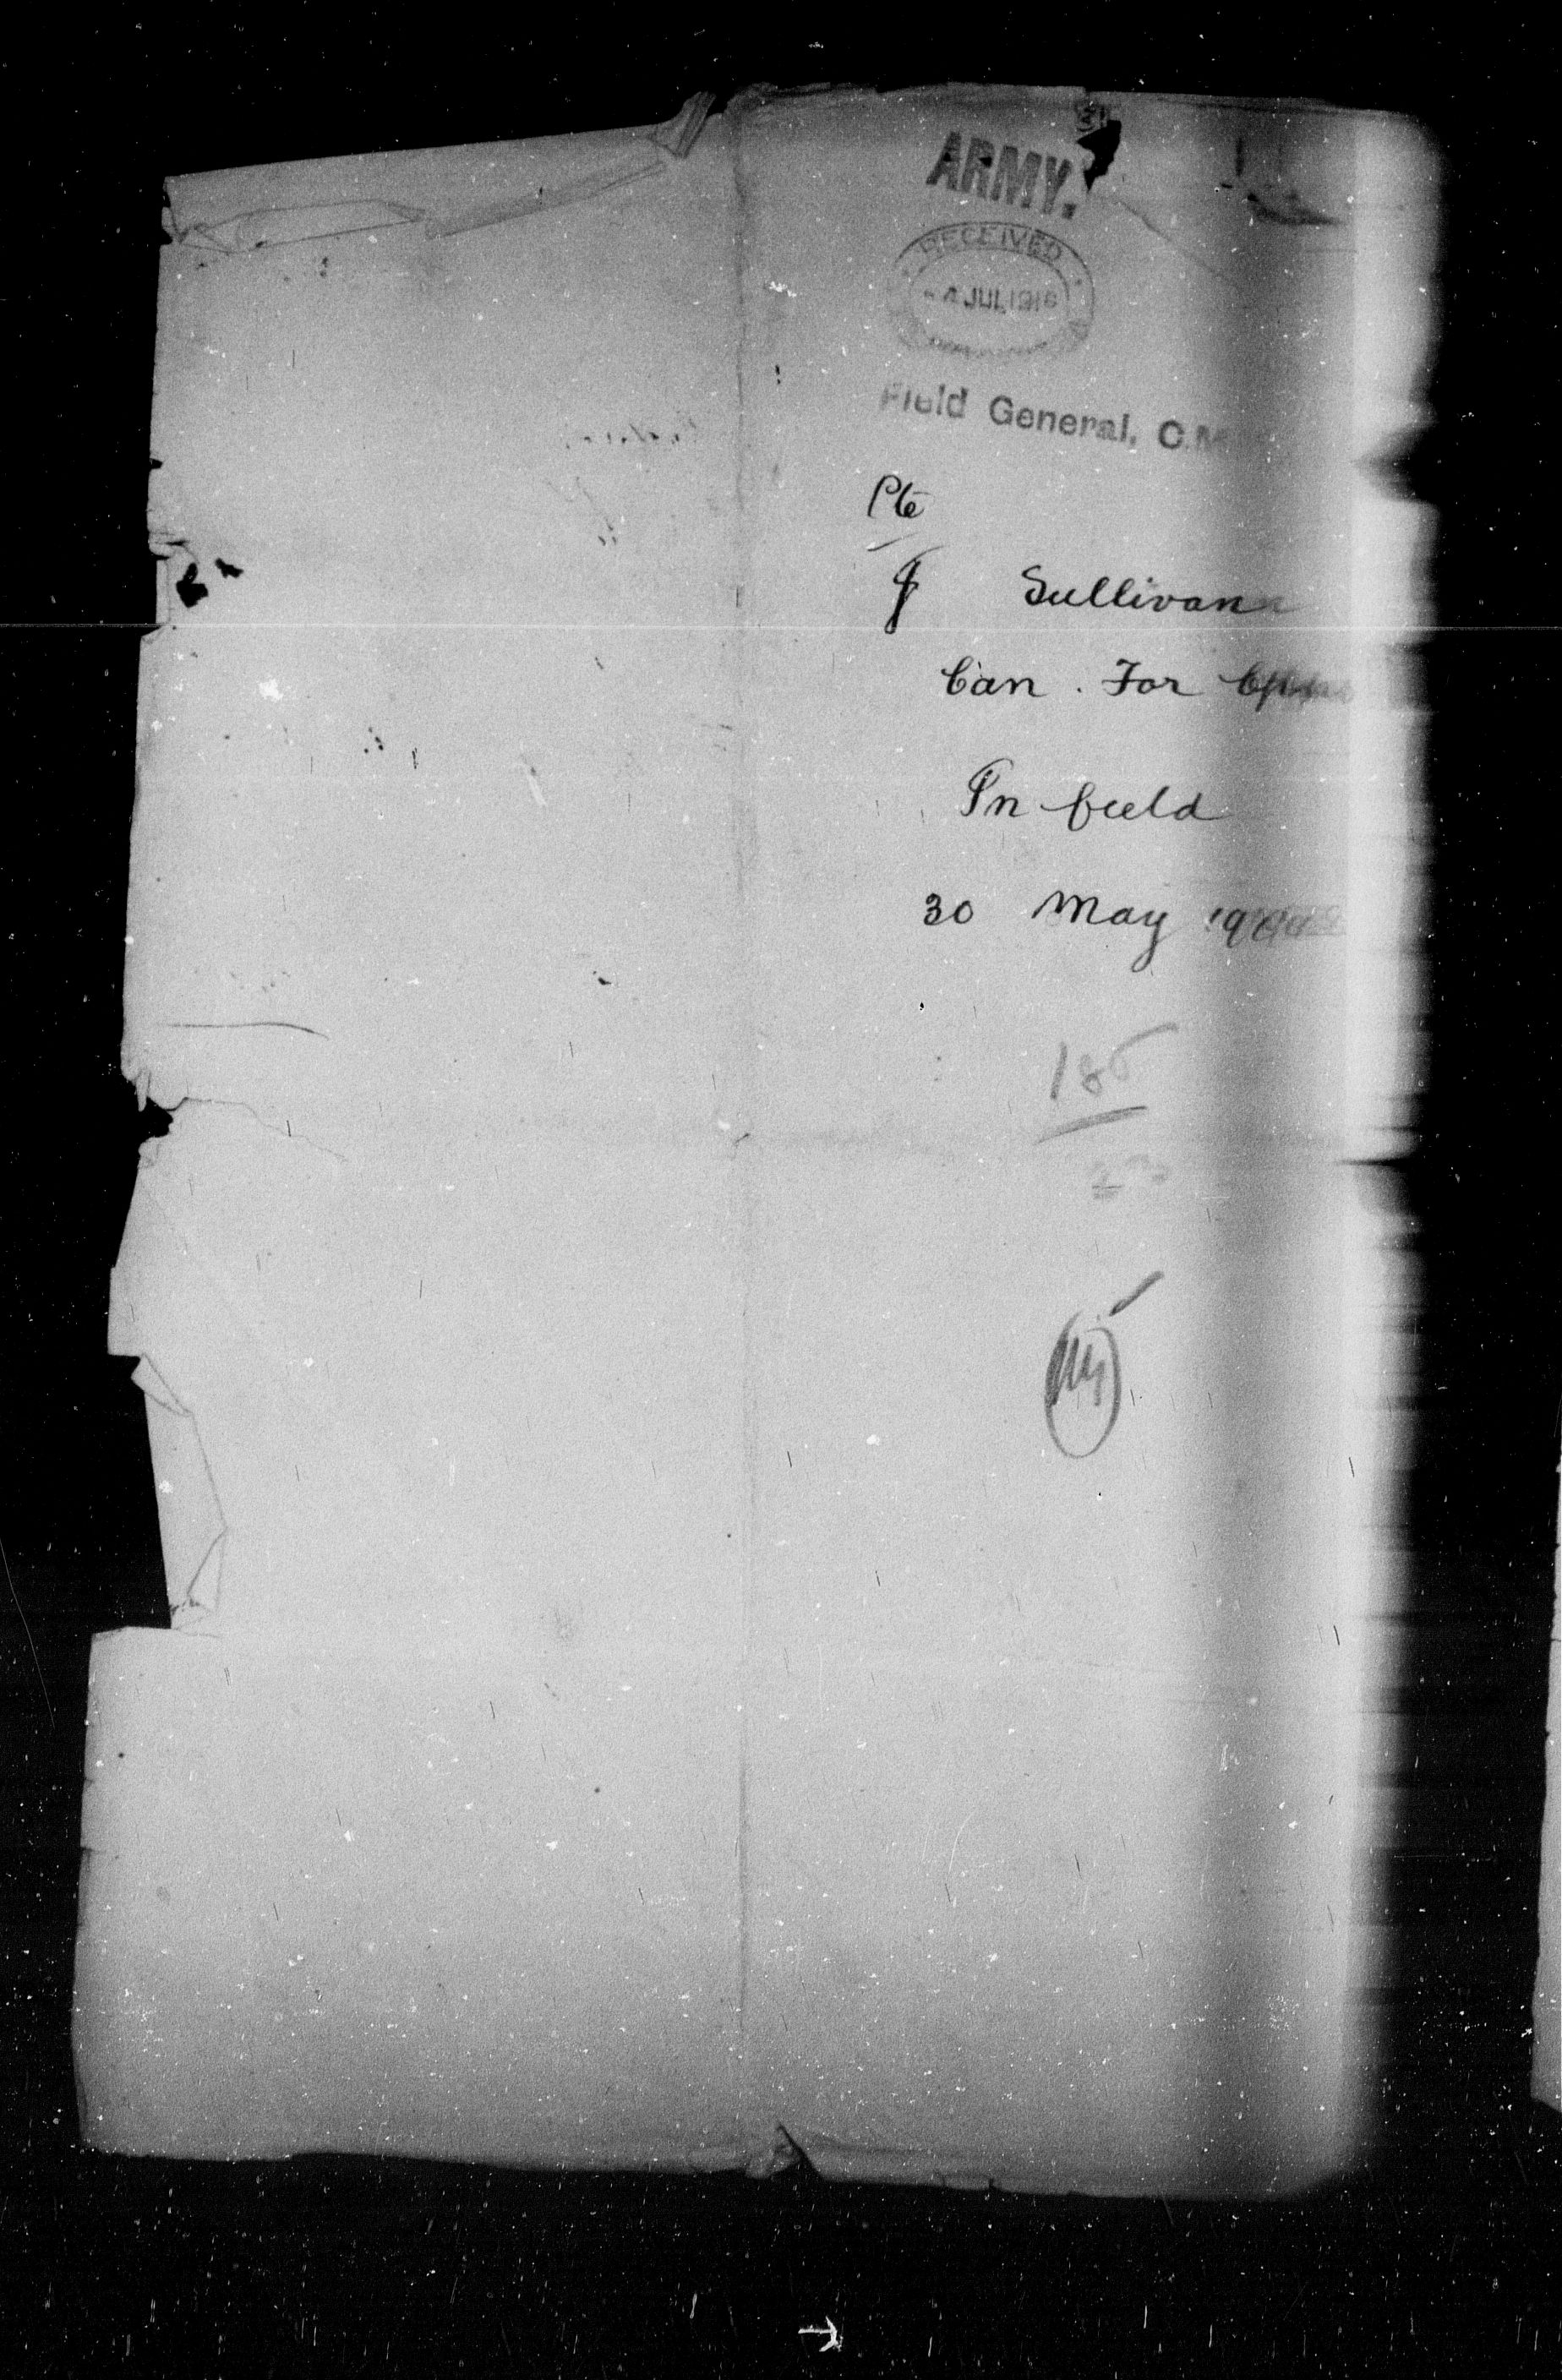 ARMY.
RECEIVED
4 JUL 1918
Field General, C.M
Pte
J Sullivan
Can . For
In field
30 May